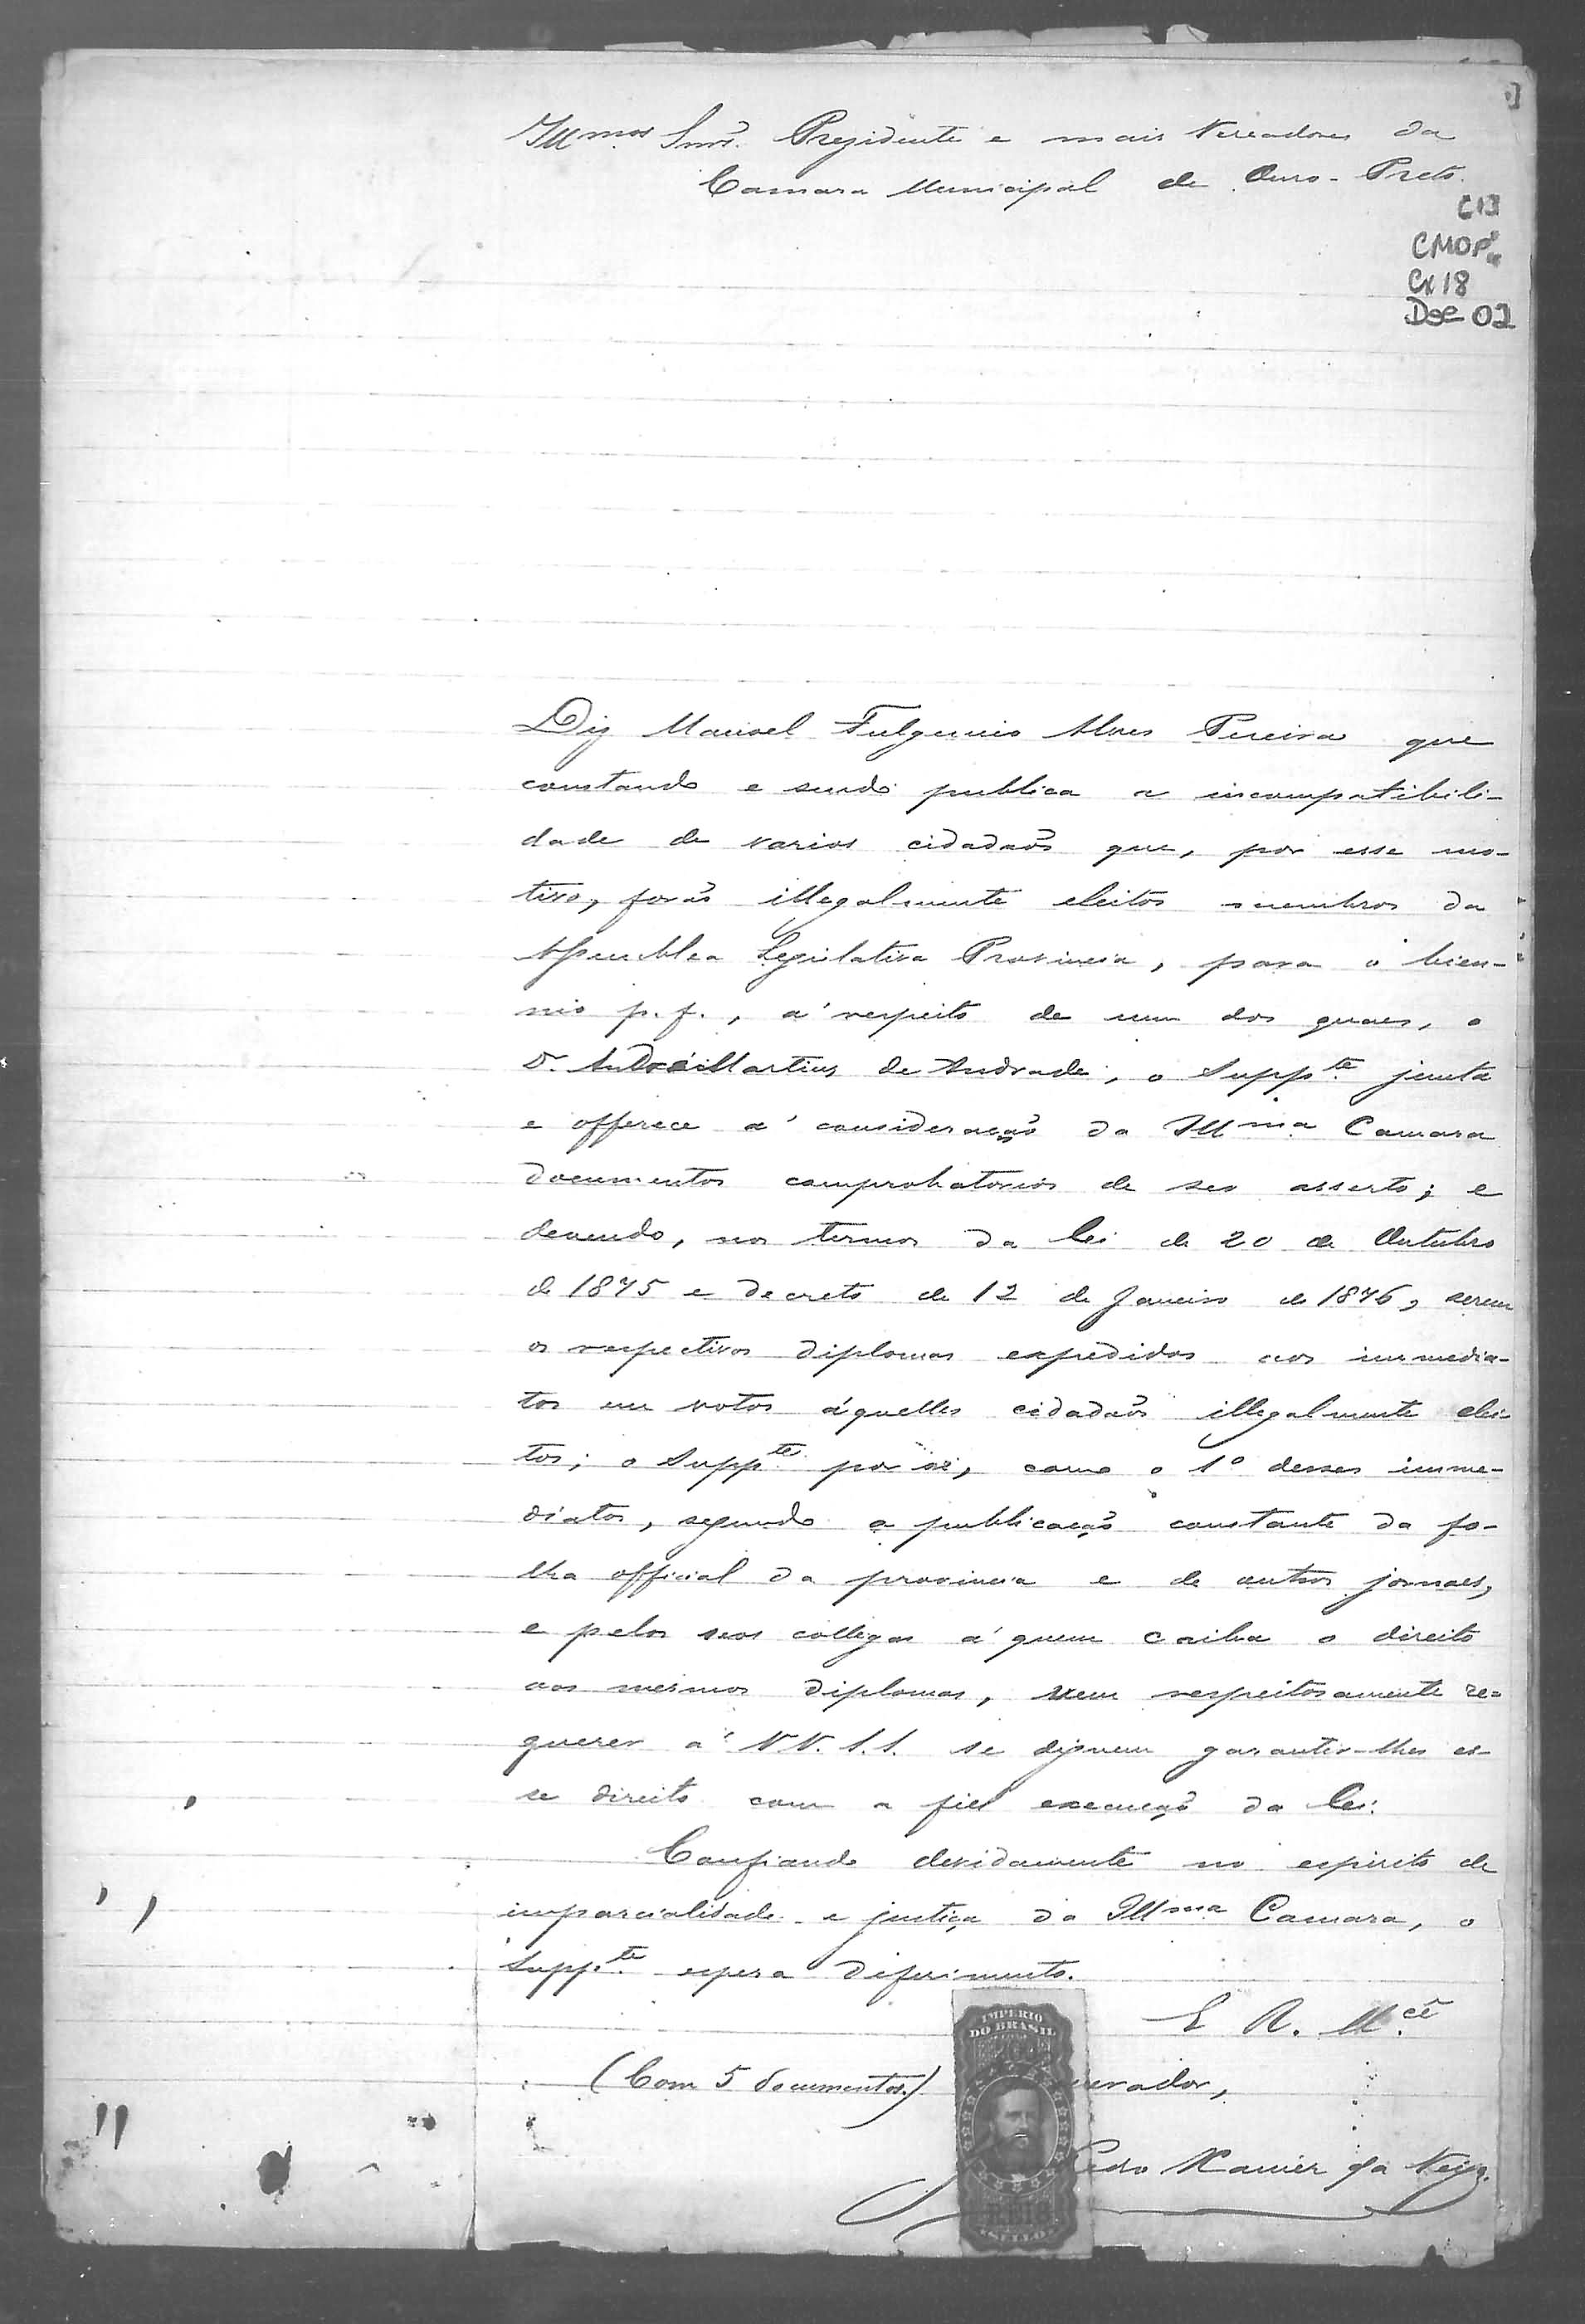 Illmos. Snrs. Prezidente e mais Vereadores da
Camara Municipal de Ouro-Preto.
CMOP
Cx 18
Doc 02
Diz Manoel Fulgencio Alves Pereira que
constando e sendo publica a incompatibili-
dade de varios cidadaõs que, por esse mo-
tivo, foraõ illegalmente eleitos membros da
Assemblea Legislativa Provincia, para o bien-
nio p. f., a' respeito de um dos quaes, o
Dr. André Martins de Andrade, o Suppte. junta
e offerece a' consideraçaõ da Illma Camara
documentos comprobatorios de seo asserto; e
devendo, nos termos da lei de 20 de Outubro
de 1875 e decreto de 12 de Janeiro de 1876, serem
os respectivos diplomas expedidos aos immedia-
tos em votos áquelles cidadaõs illegalmente elei-
tos; o Suppte. por si, como o 1º desses imme-
diatos, segundo a publicaçaõ constante da fo-
lha official da provincia e de outros jornaes,
e pelos seos collegas a' quem caiba o direito
aos mesmos diplomas, vem respeitosamente re-
querer a' VV. S.S. se dignem garantir-lhes es-
se direito com a fiel execuçaõ da lei.
Confiando devidamente no espirito de
imparcialidade e justiça da Illma Camara, o
Suppte. espera diferimento.
E R. Mcê
IMPERIO
DO BRASIL
(Com 5 documentos.) urador,
Pedro Xavier da Veiga.
SELLO